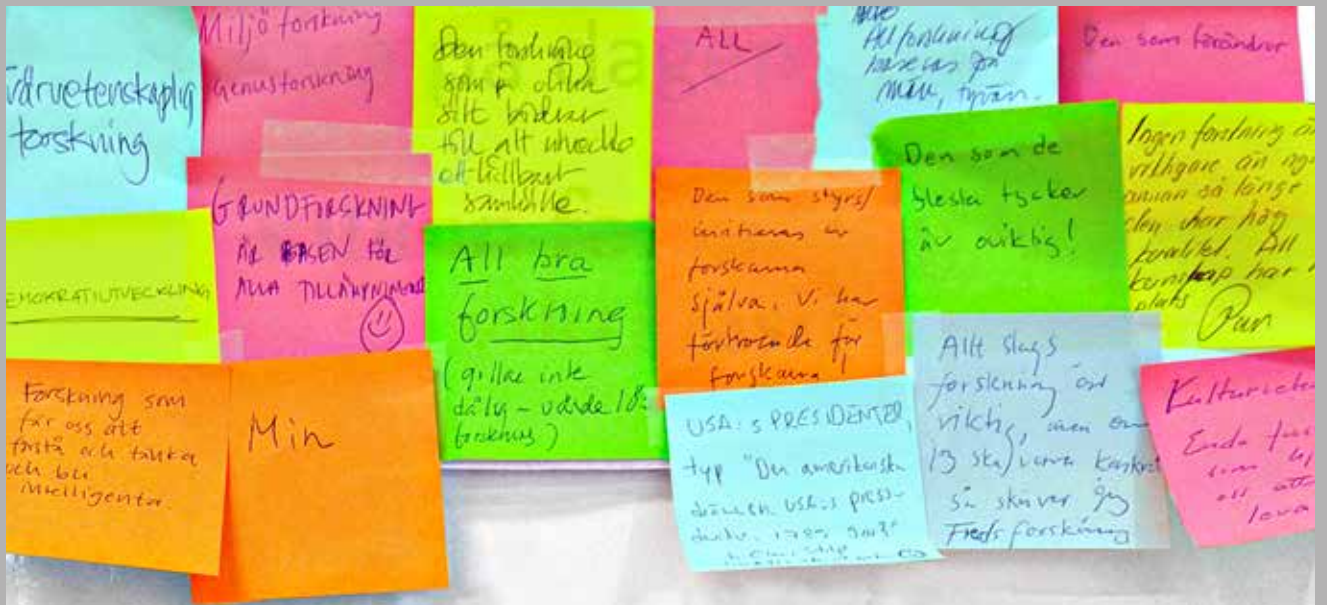 Tvärvetenskaplig
forskning
Miljöforskning
Genusforskning
Den forskning
som på olika
sätt bidrar
till att utveckla
ett hållbart
samhälle.
ALL
All forskning
baseras på
män, tyvärr.
Den som förändrar
DEMOKRATIUTVECKLING
GRUNDFORSKNING
ÄR BASEN FÖR
ALLA TILLÄMPNINGAR
All bra
forskning
(gillar inte
dålig -
Den som styrs/
initieras av
forskarna
själva. Vi har
förtroende för
forskarna!
Den som de
flesta tycker
är oviktig!
Ingen forskning är
viktigare än
annan så länge
den har hög
kvalitet. All
kunskap har
plats
Forskning som
får oss att
förstå och tänka
och bli
intelligenta.
Min
USA:S PRESIDENTER,
typ "Den amerikanska
drömmen USA:s
Allt slags
forskning är
viktig, men om
ska vara
så skriver jag
Fredsforskning
Enda
som
oss att